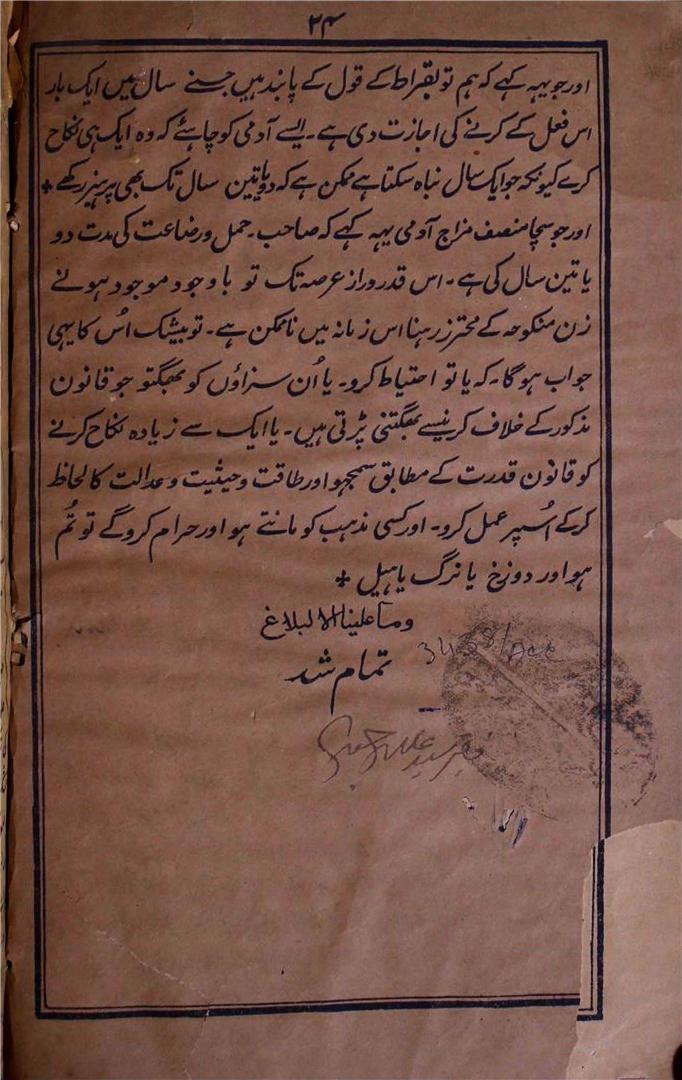 ۲۴
اور جو یہہ کہے کہ ہم تو بقراط کے قول کے پابند ہیں جسنے سال میں ایک بار
اس فعل کے کرنے کی اجازت دی ہے۔ ایسے آدمی کو چاہئے کہ وہ ایک ہی نکاح
کرے کیونکہ جو ایک سال نباہ سکتا ہے ممکن ہے کہ دو یا تین سال تک بھی پرہیز رکھے +
اور جو سچا منصف مزاج آدمی یہہ کہے کہ صاحب۔ حمل و رضاعت کی مدت دو
یا تین سال کی ہے۔ اس قدر دراز عرصہ تک تو باوجود موجود ہونے
زن منکوحہ کے محترز رہنا اس زمانہ میں ناممکن ہے۔ تو بیشک اُس کا یہی
جواب ہوگا۔ کہ یا تو احتیاط کرو۔ یا اُن سزاؤں کو بھگتو جو قانون
مذکور کے خلاف کرنیسے بھگتنی پڑتی ہیں۔ یا ایک سے زیادہ نکاح کرنے
کو قانون قدرت کے مطابق سمجھو اور طاقت و حیثیت و عدالت کا لحاظ
کرکے اُسپر عمل کرو۔ اور کسی مذہب کو مانتے ہو اور حرام کروگے تو تُم
ہو اور دوزخ یا نرگ یا ہیل +
وما علینا الا البلاغ
تمام شد